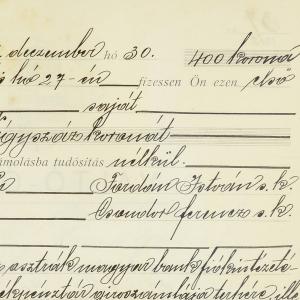 deczember hó 30. 400 korona
hó 27-én fizessen Ön ezen első
saját
Négyszáz koronát
számolásba tudósítás nélkül.
Jordán István s. k.
Csandor ferencz s. k.
osztrák magyar bank fiókintézeté-
girószámlája terhére